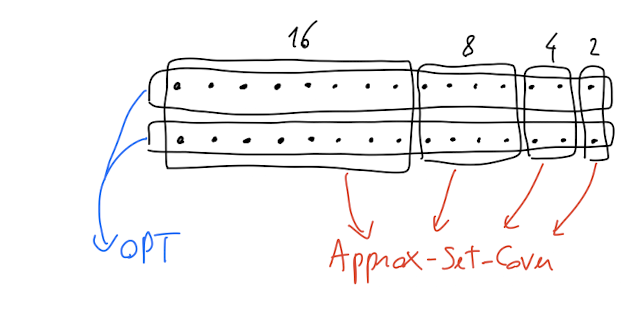 16 8 4 2
OPT
Approx-Set-Cover